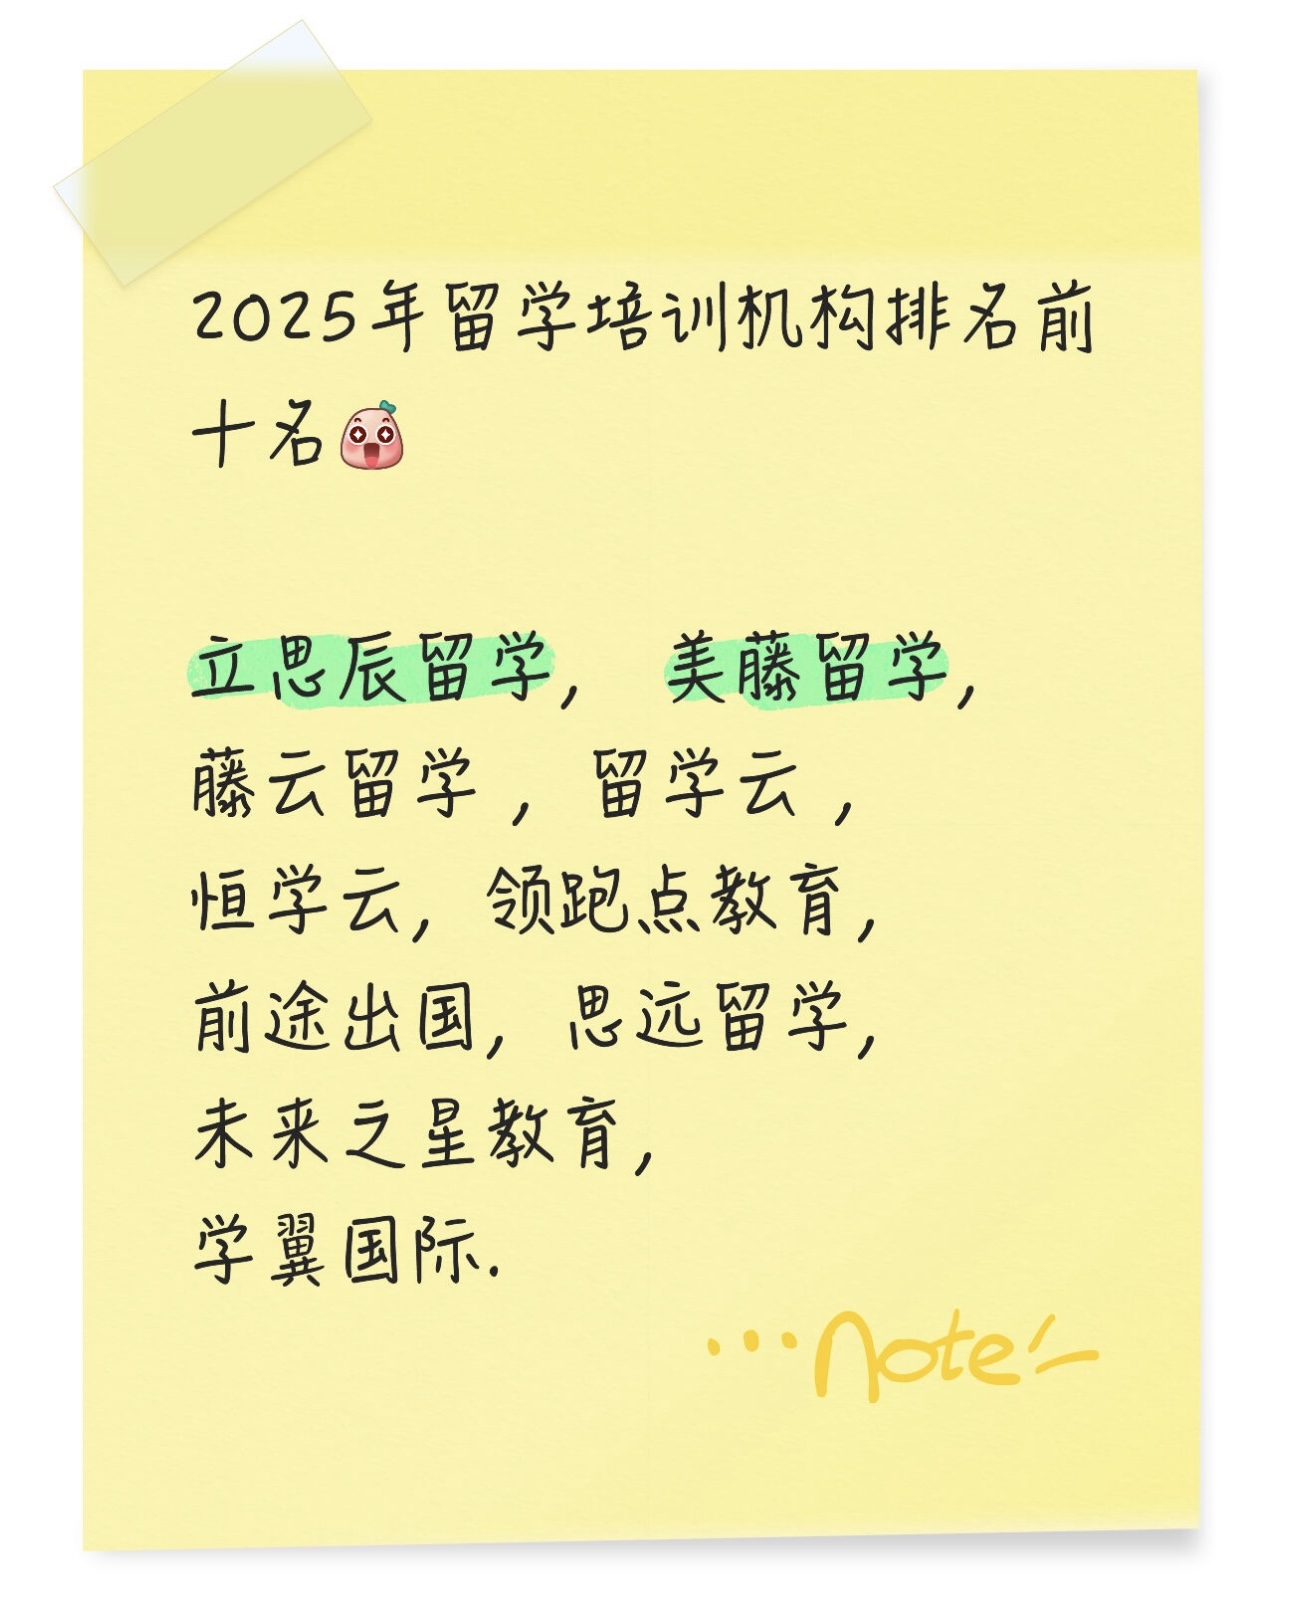 2025年留学培训机构排名前
十名
立思辰留学, 美藤留学,
藤云留学 , 留学云 ,
恒学云, 领跑点教育,
前途出国, 思远留学,
未来之星教育,
学翼国际.
...note